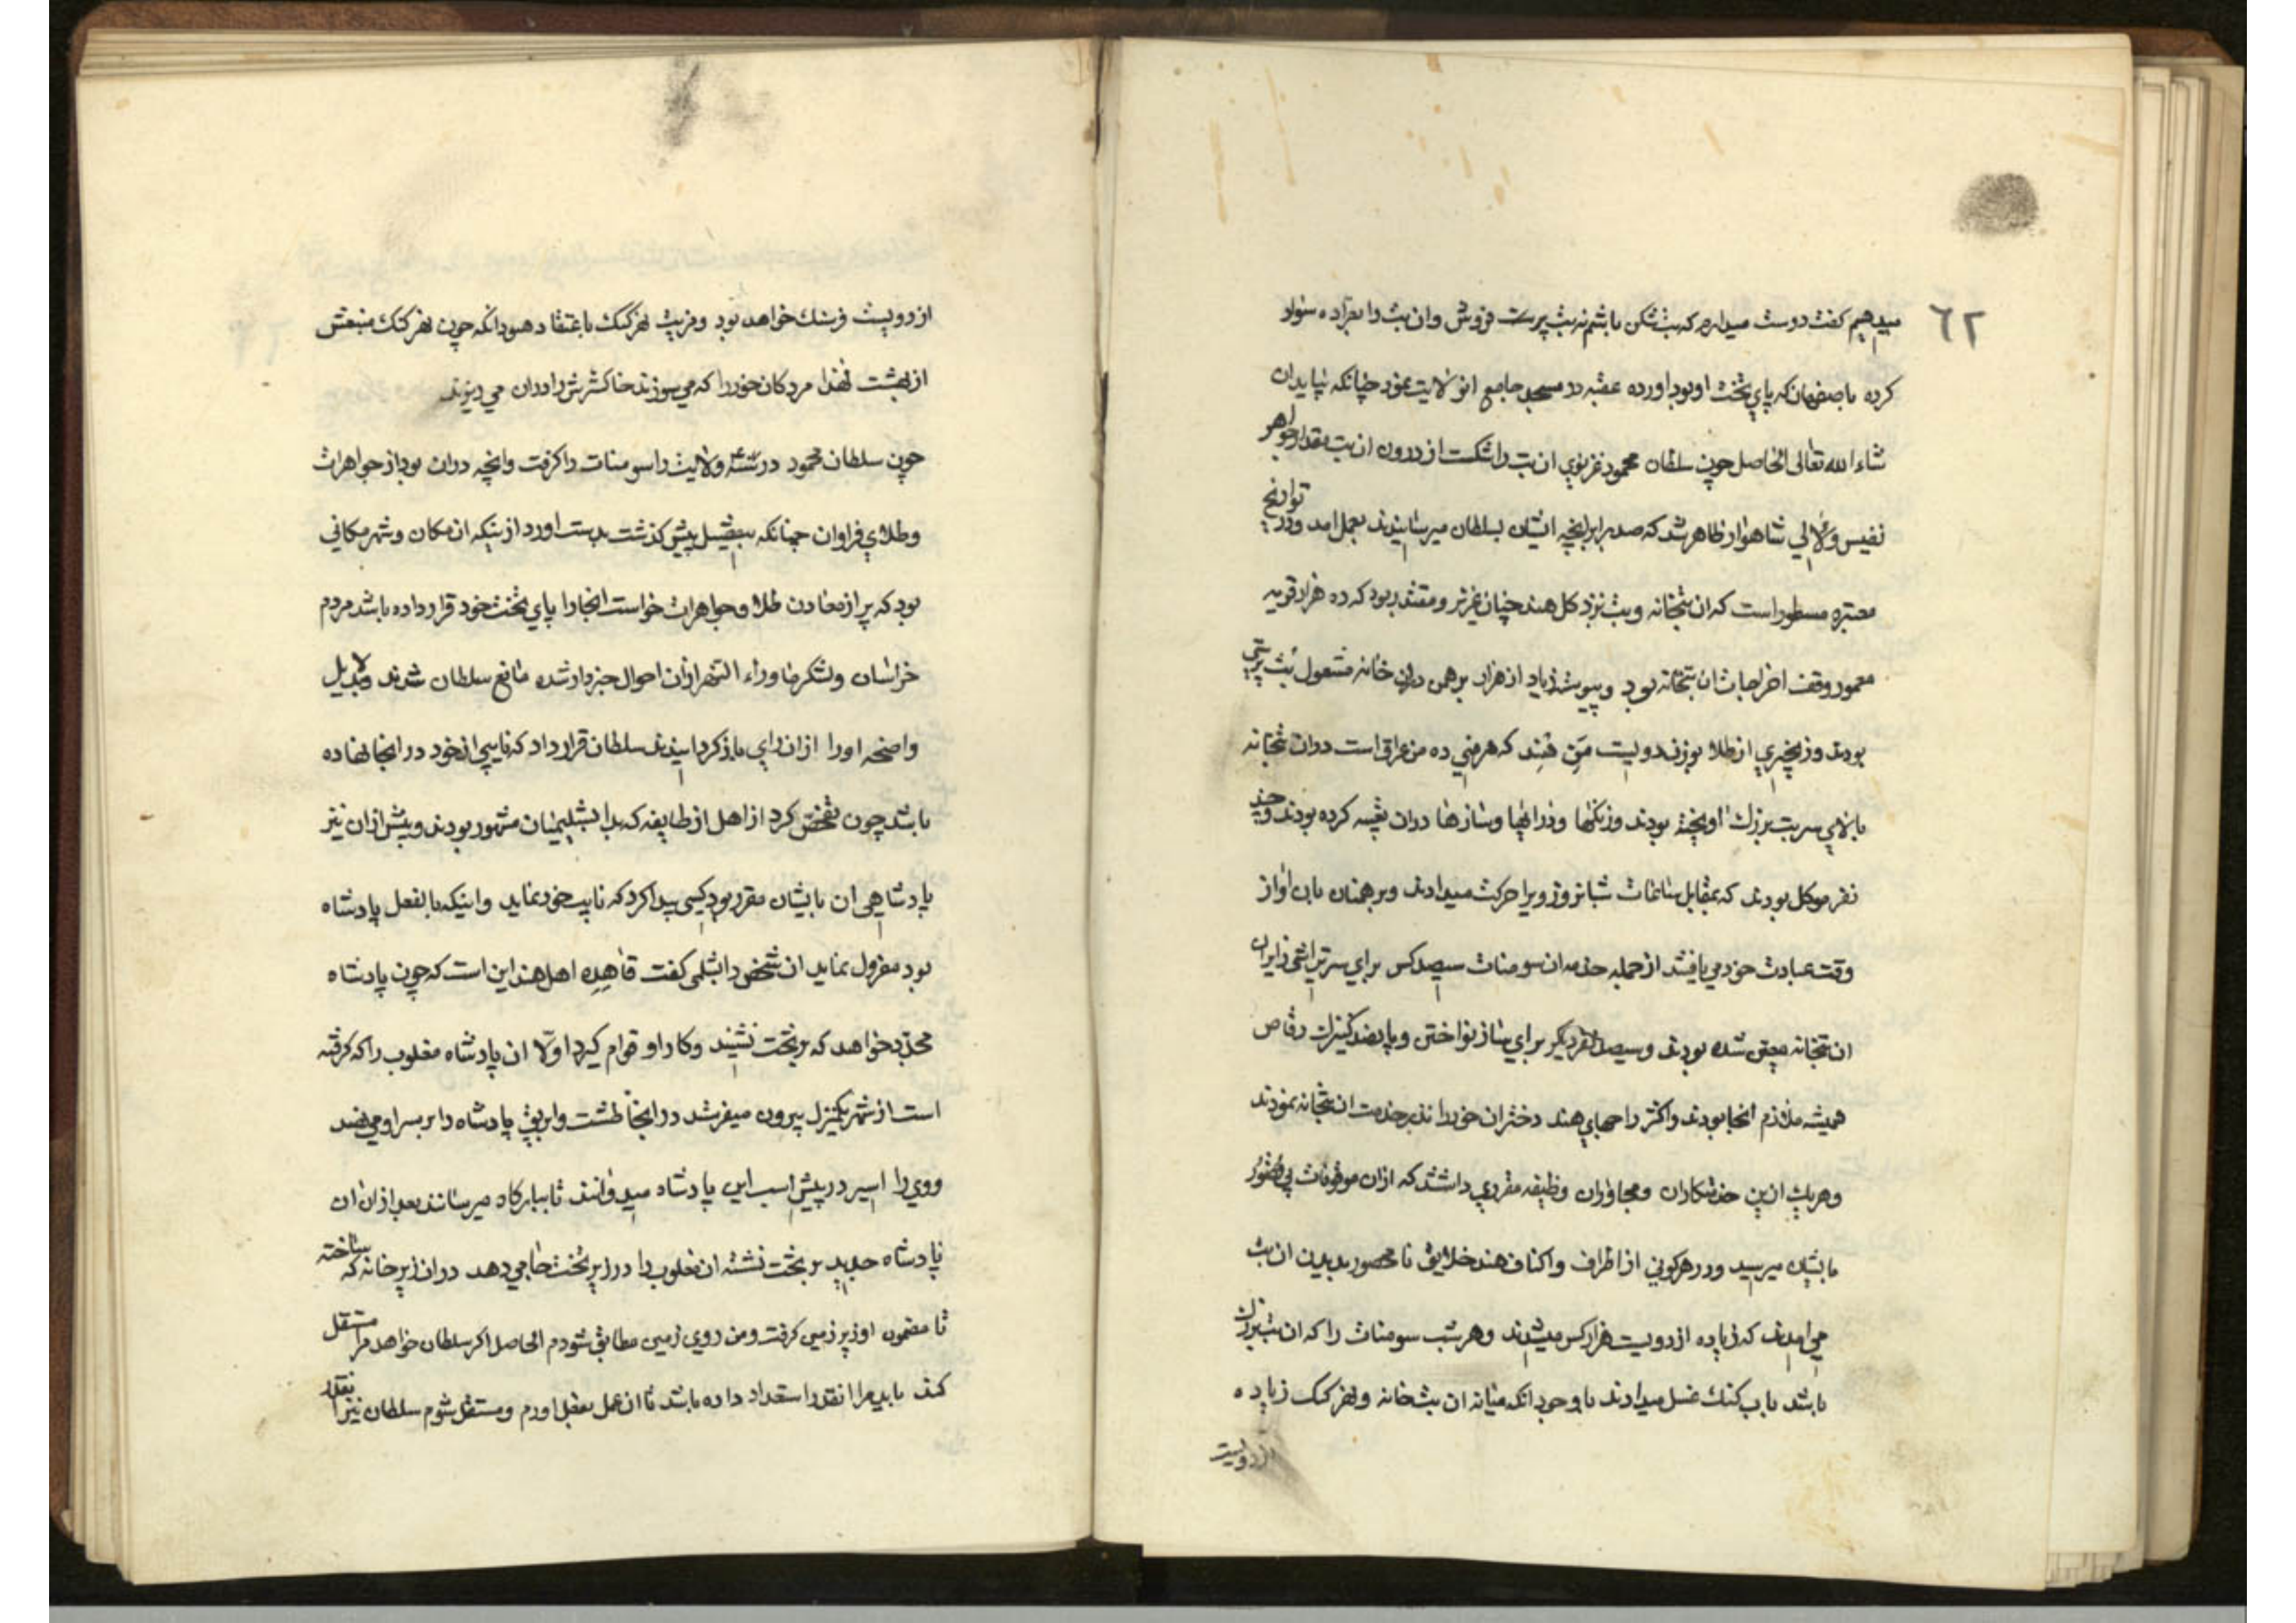 ٦٢
میدهیم کفت دوست میدارم که بت شکن باشم نه بت پرست فروش وان بت را بعراده سوار
کرده باصفهان که پای تخت او بود اورده عقبه در مسجد جامع انولایت نمود چنانکه بیاید ان
شاء الله تعالی الحاصل چون سلطان محمود غزنوی ان بت را شکست از درون ان بت بقدر جواهر
نفیس و لالی شاهوار ظاهر شد که صد برابر انچه ایشان بسلطان میرسانیدند بعمل امد و در تواریخ
معتبره مسطور است که ان بتخانه و بت نزد کل هند چنان عزیز و مقتدر بود که ده هزار قریه
معمور وقف اخراجات ان بتخانه بود و پیوسته زیاد از هزار برهمن دران خانه مشغول بت پرستی
بودند و زنجیری از طلا بوزن دویست من هند که هر منی ده من عراق است دران بتخانه
بالای سر بت بزرک اویخته بودند و زنکها و درایها و سازها دران تعبیه کرده بودند و چند
نفر موکل بودند که بمقابل ساعات شبانروز ویرا حرکت میدادند و برهمنان بان اواز
وقت عبادت خود می یافتند از جمله خدمه ان سومنات سیصد کس برای سرتراشی زایران
ان بتخانه معین شده بودند و سیصد نفر دیکر برای ساز نواختن و پانصد کنیزک رقاص
همیشه ملازم انجا بودند و اکثر راجهای هند دختران خود را نذر خدمت ان بتخانه نمودند
و هر یک ازین خدمتکاران و مجاوران وظیفه مقرری داشتند که ازان موقوفات بی قصور
بایشان میرسید و در هر کونی از اطراف و اکناف هند خلایق نامحصور بدیدن ان بت
می امدند که زیاده از دویست هزار کس میشدند و هر شب سومنات را که ان بت بزرک
باشد باب کنک غسل میدادند با وجود انکه میانه ان بتخانه و نهر کنک زیاده
از دویست
از دویست فرسنک خواهد بود و مزیت نهر کنک باعتقاد هنود انکه چون نهر کنک منبعش
از بهشت لهذا مردکان خود را که می سوزند خاکسترش را دران می ریزند
چون سلطان محمود در سنه ولایت را سومنات را کرفت و انچه دران بود از جواهرات
و طلای فراوان چنانکه بتفصیل پیش کذشت بدست اورد از بنیکه ان مکان و شهر مکانی
بود که پر از معادن طلا و جواهرات خواست انجا را پای تخت خود قرار داده باشد مردم
خراسان و لشکر ماوراء النهر ازان احوال خبردار شده مانع سلطان شدند و بدلایل
واضحه او را ازان رای باز کردانیدند سلطان قرار داد که نایبی از خود در انجا نهاده
باشد چون تفحص کرد از اهل ان طایفه که بدابشلیمیان مشهور بودند و پیش ازان نیز
پادشاهی ان بایشان مقرر بود کسی پیدا کرد که نایب خود نماید و اینکه بالفعل پادشاه
بود معزول نماید ان شخص دابشلمی کفت قاهده اهل هند این است که چون پادشاه
مجدد خواهد که بر تخت نشیند و کار او قوام کیرد اولا ان پادشاه مغلوب را که کرفته
است از شهر یکمنزل بیرون میفرستد در انجا طشت و ابریق پادشاه را بر سر او می نهند
و وی را اسیر در پیش اسب این پادشاه میدوانند تا ببارکاه میرسانند بعد ازان ان
پادشاه جدید بر تخت نشسته ان مغلوب را در زیر تخت جا می دهد دران زیر خانه که ساخته
تا مضمون او زیر زمین کرفت و من روی زمین مطابق شود م الحاصل اکر سلطان خواهد مرا مستقل
کند باید مرا انقدر استعداد داده باشد تا ان عمل بعمل اورم و مستقل شوم سلطان نیز انقدر